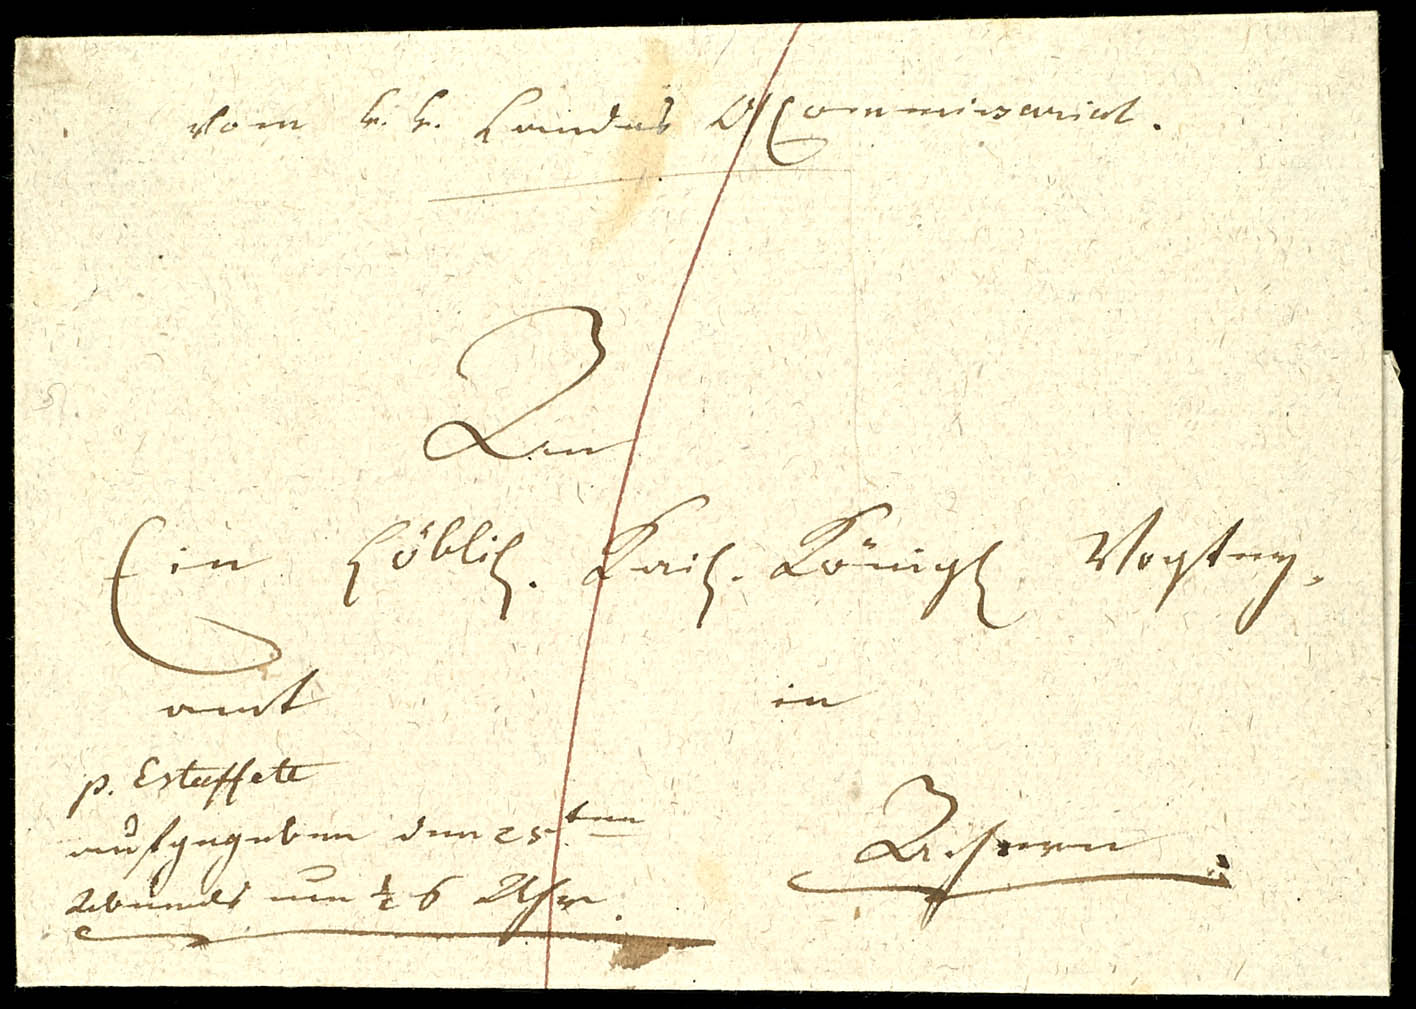 Vom k. k. Landes Commissariat.
An
Ein Löblich. Kais. Königl Vogtey,
amt in
p. Estaffete
aufgegeben den 25ten
Abends um ½ 6 Uhr.
Achern